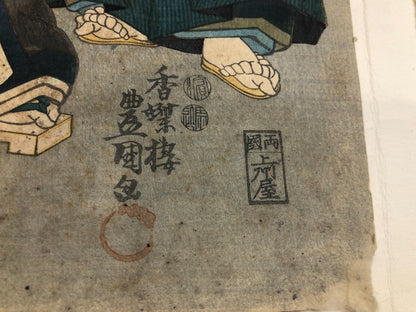 香蝶楼
豊国画
両國
上州屋